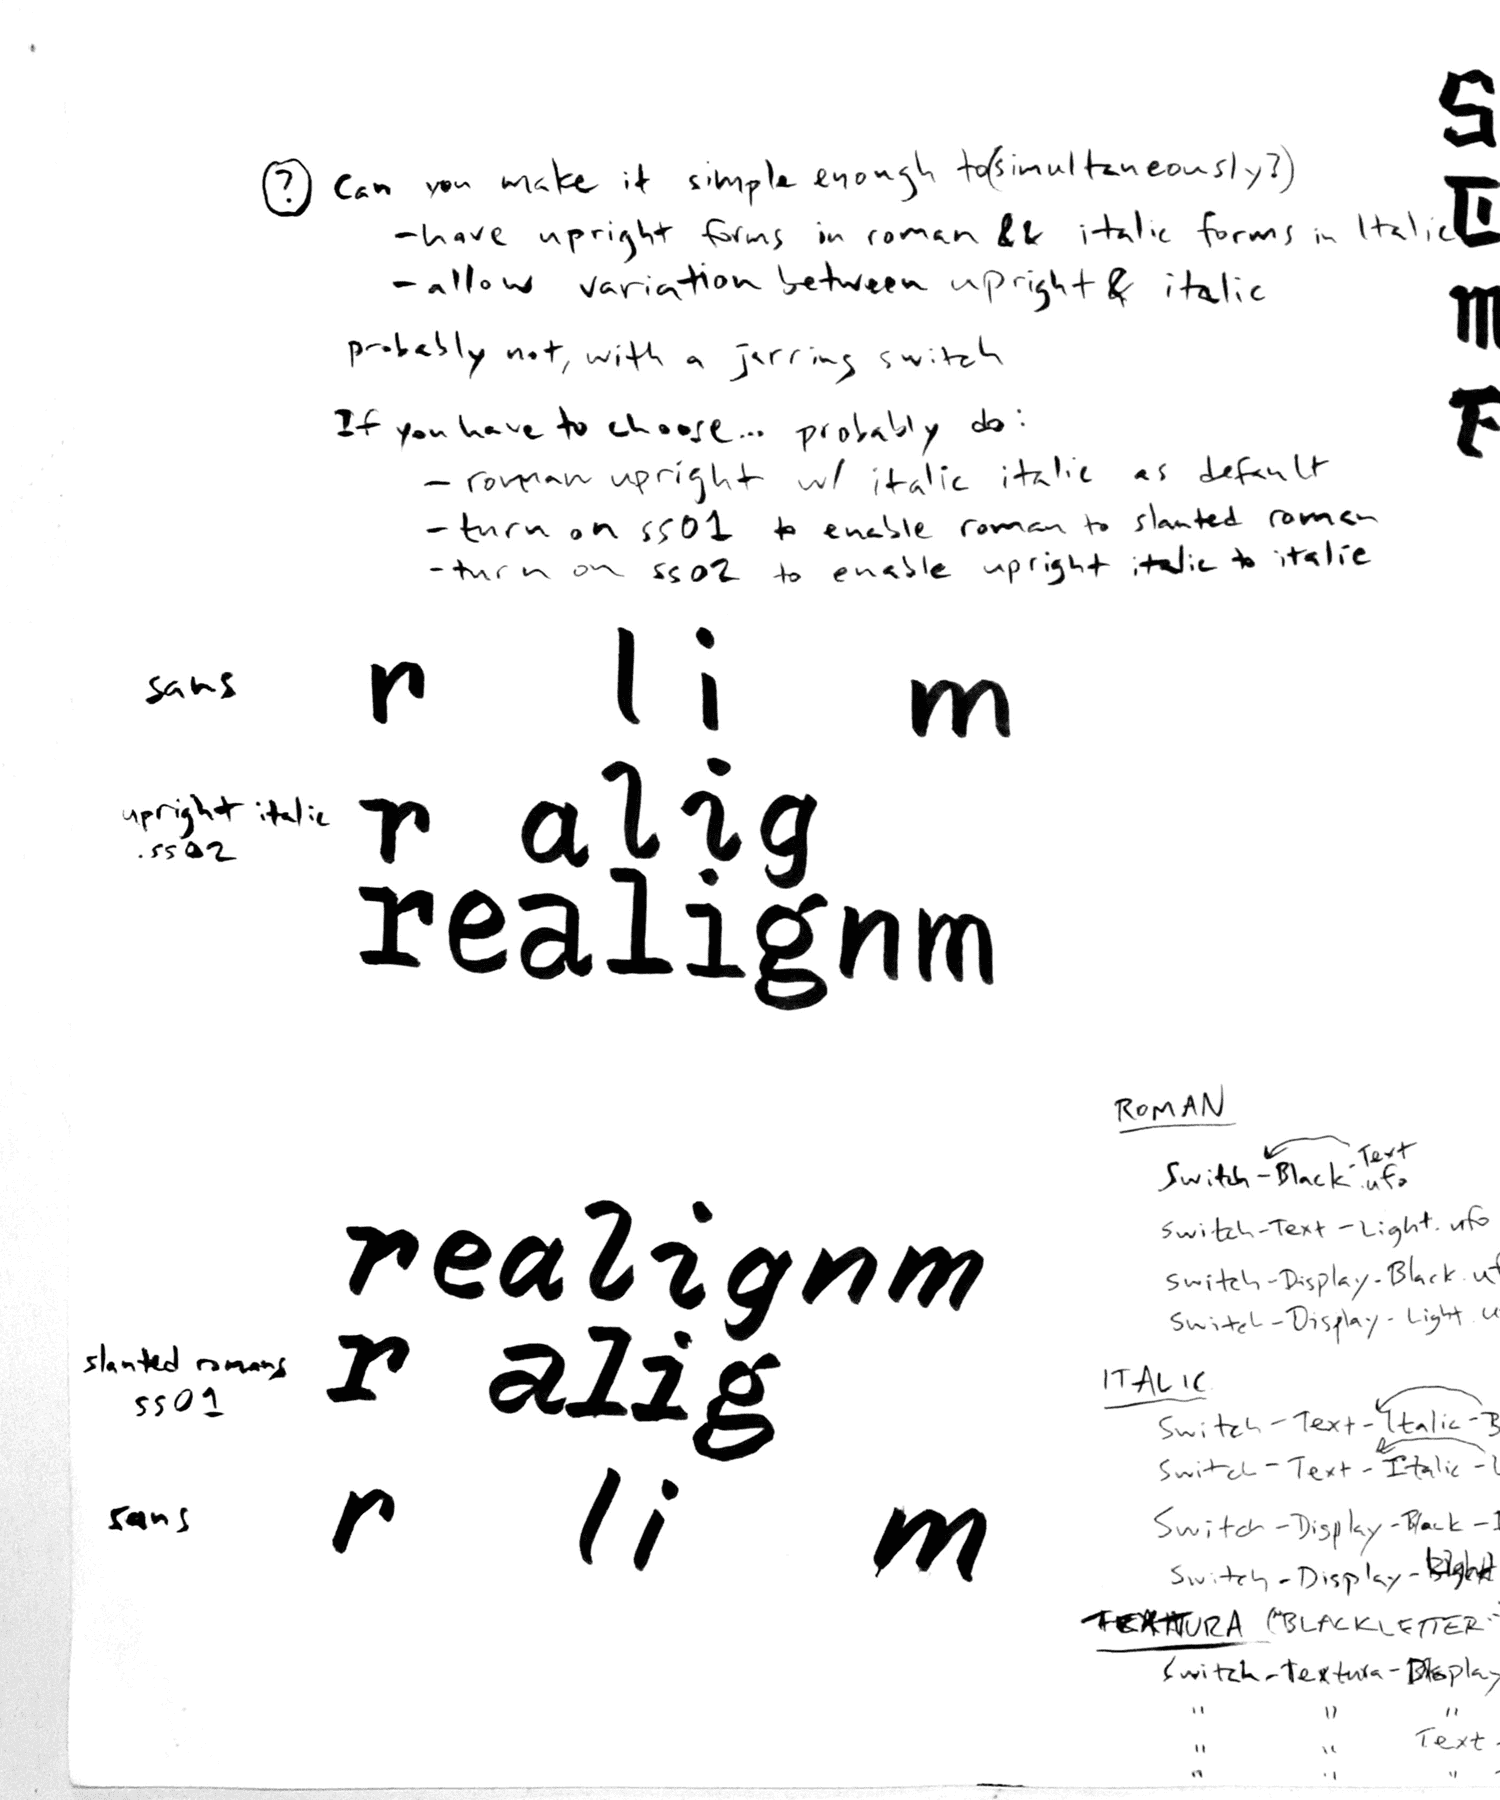 ? Can you make it simple enough to (simultaneously?)
- have upright forms in roman && italic forms in Italic
- allow variation between upright & italic
probably not, with a jarring switch
If you have to choose... probably do:
- roman upright w/ italic italic as default
- turn on ss01 to enable roman to slanted roman
- turn on ss02 to enable upright italic to italic
sans r l i m
upright italic r a l i g
.ss02
realignm
realignm
slanted romans r a l i g
ss01
sans r l i m
S
m
F
ROMAN
Text
Switch-Black.ufo
Switch-Text-Light.ufo
Switch-Display-Black.uf
Switch-Display-Light.u
ITALIC
Switch-Text-Italic-B
Switch-Text-Italic-L
Switch-Display-Black-I
Switch-Display-Light
TEXTURA ("BLACKLETTER"
Switch-Textura-Display
" " "
" " Text-
" " "